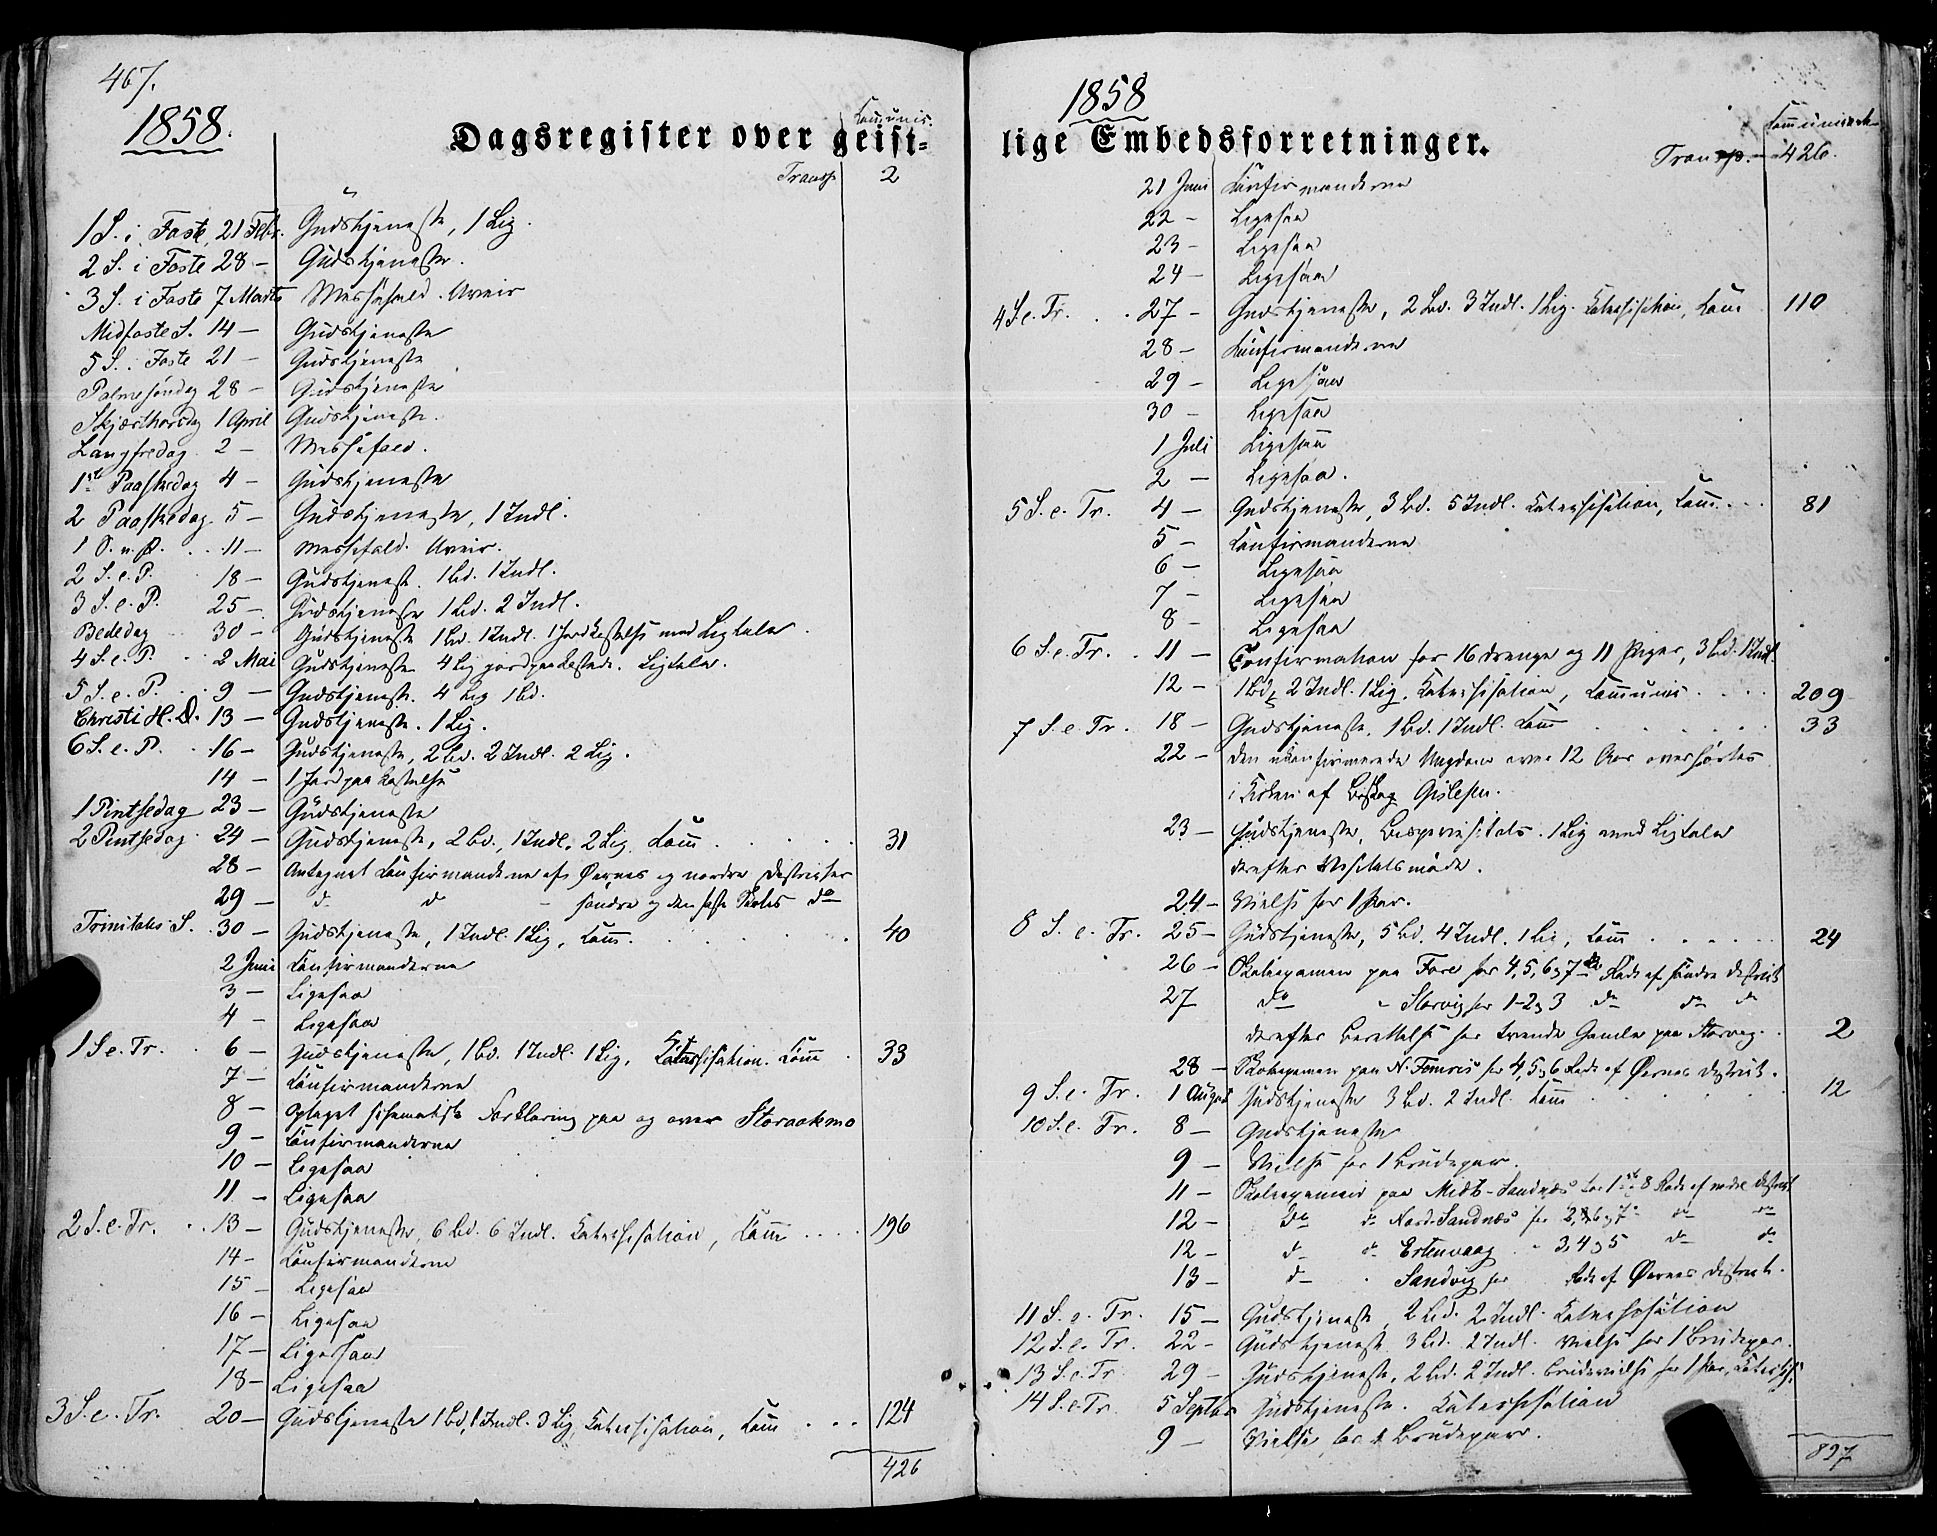 467.
1858.
Dagsregister over geist=
Communic.
Transp. 2
1 S. i Faste, 21 Febr. Gudstjeneste, 1 Lig.
2 S. i Faste 28 — Gudstjeneste.
3 S. i Faste 7 Marts Messefald. Uveir
Midfaste S. 14 — Gudstjeneste
5 S. i Faste 21 — Gudstjeneste
Palmesøndag 28 — Gudstjeneste
Skjærthorsdag 1 April Gudstjeneste.
Langfredag 2 — Messefald.
1ste Paaskedag 4 — Gudstjeneste
2 Paaskedag 5 — Gudstjeneste, 1 Indl.
1 S. e. P. 11 — Messefald. Uveir.
2 S. e. P. 18 — Gudstjeneste. 1 Bd. 1 Indl.
3 S. e. P. 25 — Gudstjeneste 1 Bd. 2 Indl.
Bededag 30 — Gudstjeneste 1 Bd. 1 Indl. 1 Jordkastelse med Ligtale.
4 S. e. P. 2 Mai Gudstjeneste 4 Lig jordpaakastede. Ligtale.
5 S. e. P. 9 — Gudstjeneste. 4 Lig 1 Bd.
Christi H. D. 13 — Gudstjeneste. 1 Lig.
6 S. e. P. 16 — Gudstjeneste, 2 Bd. 2 Indl. 2 Lig.
14 — 1 Jordpaakastelse
1 Pintsedag 23 — Gudstjeneste
2 Pintsedag 24 — Gudstjeneste, 2 Bd., 1 Indl. 2 Lig. Comm. 31
28 — Antegnet Confirmanderne af Ørnes og nordre Districter
29 — do do søndre og den faste Skoles do
Trinitatis S. 30 — Gudstjeneste, 1 Indl. 1 Lig, Comm. 40
2 Juni Confirmanderne
3 — Ligesaa
4 — Ligesaa
1 S. e. Tr. 6 — Gudstjeneste, 1 Bd. 1 Indl. 1 Lig, Catechisation. Comm. 33
7 — Confirmanderne
8 — Optaget Forklaring paa og over Storaakmo
9 — Confirmanderne
10 — Ligesaa
11 — Ligesaa
2 S. e. Tr. 13 — Gudstjeneste, 6 Bd. 6 Indl. Catechisation, Comm. 196
14 — Confirmanderne
15 — Ligesaa
16 — Ligesaa
17 — Ligesaa
18 — Ligesaa
3 S. e. Tr. 20 — Gudstjeneste 1 Bd, 1 Indl. 3 Lig, Catechisation, Comm. 124
426
1858
lige Embedsforretninger.
Communic.
Transp. 426.
21 Juni Confirmanderne
22 — Ligesaa
23 — Ligesaa
24 — Ligesaa
4 S. e. Tr. 27 — Gudstjeneste, 2 Bd. 3 Indl. 1 Lig. Catechisation, Comm 110
28 — Confirmanderne
29 — Ligesaa
30 — Ligesaa
1 Juli Ligesaa
2 — Ligesaa.
5 S. e. Tr. 4 — Gudstjeneste, 3 Bd. 5 Indl. Catechisation, Comm. 81
5 — Confirmanderne
6 — Ligesaa
7 — Ligesaa
8 — Ligesaa
6 S. e. Tr. 11 — Confirmation for 16 drenge og 11 Piger, 3 Bd. 1 Indl.
12 — 1 Bd, 2 Indl. 1 Lig. Catechisation, Communic. 209
7 S. e. Tr. 18 — Gudstjeneste, 1 Bd. 1 Indl. Comm 33
22 — Den ukonfirmerede Ungdom over 12 Aar overhørtes
i Kirken af Biskop Gislesen.
23 — Gudstjeneste, Bispevisitats. 1 Lig med Ligtale
derefter Visitatsmøde.
24 — Vielse for 1 Par.
8 S. e. Tr. 25 — Gudstjeneste, 5 Bd. 4 Indl. 1 Lig, Comm 24
26 — Skoleexamen paa Fore for 4, 5, 6 og 7de Rode af søndre District
27 do — Storvig for 1-2 og 3 do do do
derefter Berettelse for trende Gamle paa Storvig. 2
28 — Skoleexamen paa N. Femris for 4, 5 og 6 Rode af Ørnes District.
9 S. e. Tr. 1 August Gudstjeneste 3 Bd. 2 Indl. Comm 12
10 S. e. Tr. 8 — Gudstjeneste
9 — Vielse for 1 Brudepar.
11 — Skoleexamen paa Midt-Sandnæs for 1ste 8 Rode af nordre District
12 — do do Nord-Sandnæs for 2, 6 og 7de do do
12 — do do Ertenvaag 3, 4 og 5 do do
13 — do Sandvig for Rode af Ørnes District.
11 S. e. Tr. 15 — Gudstjeneste, 2 Bd. 2 Indl. Catechisation
12 S. e. Tr. 22 — Gudstjeneste 3 Bd. 2 Indl. Vielse for 1 Brudepar.
13 S. e. Tr. 29 — Gudstjeneste, 2 Bd. 2 Indl. Brudevielse for 1 Par, Catechis.
14 S. e. Tr. 5 Septbr Gudstjeneste. Catechisation
9 — Vielse for 1 Brudepar.
897